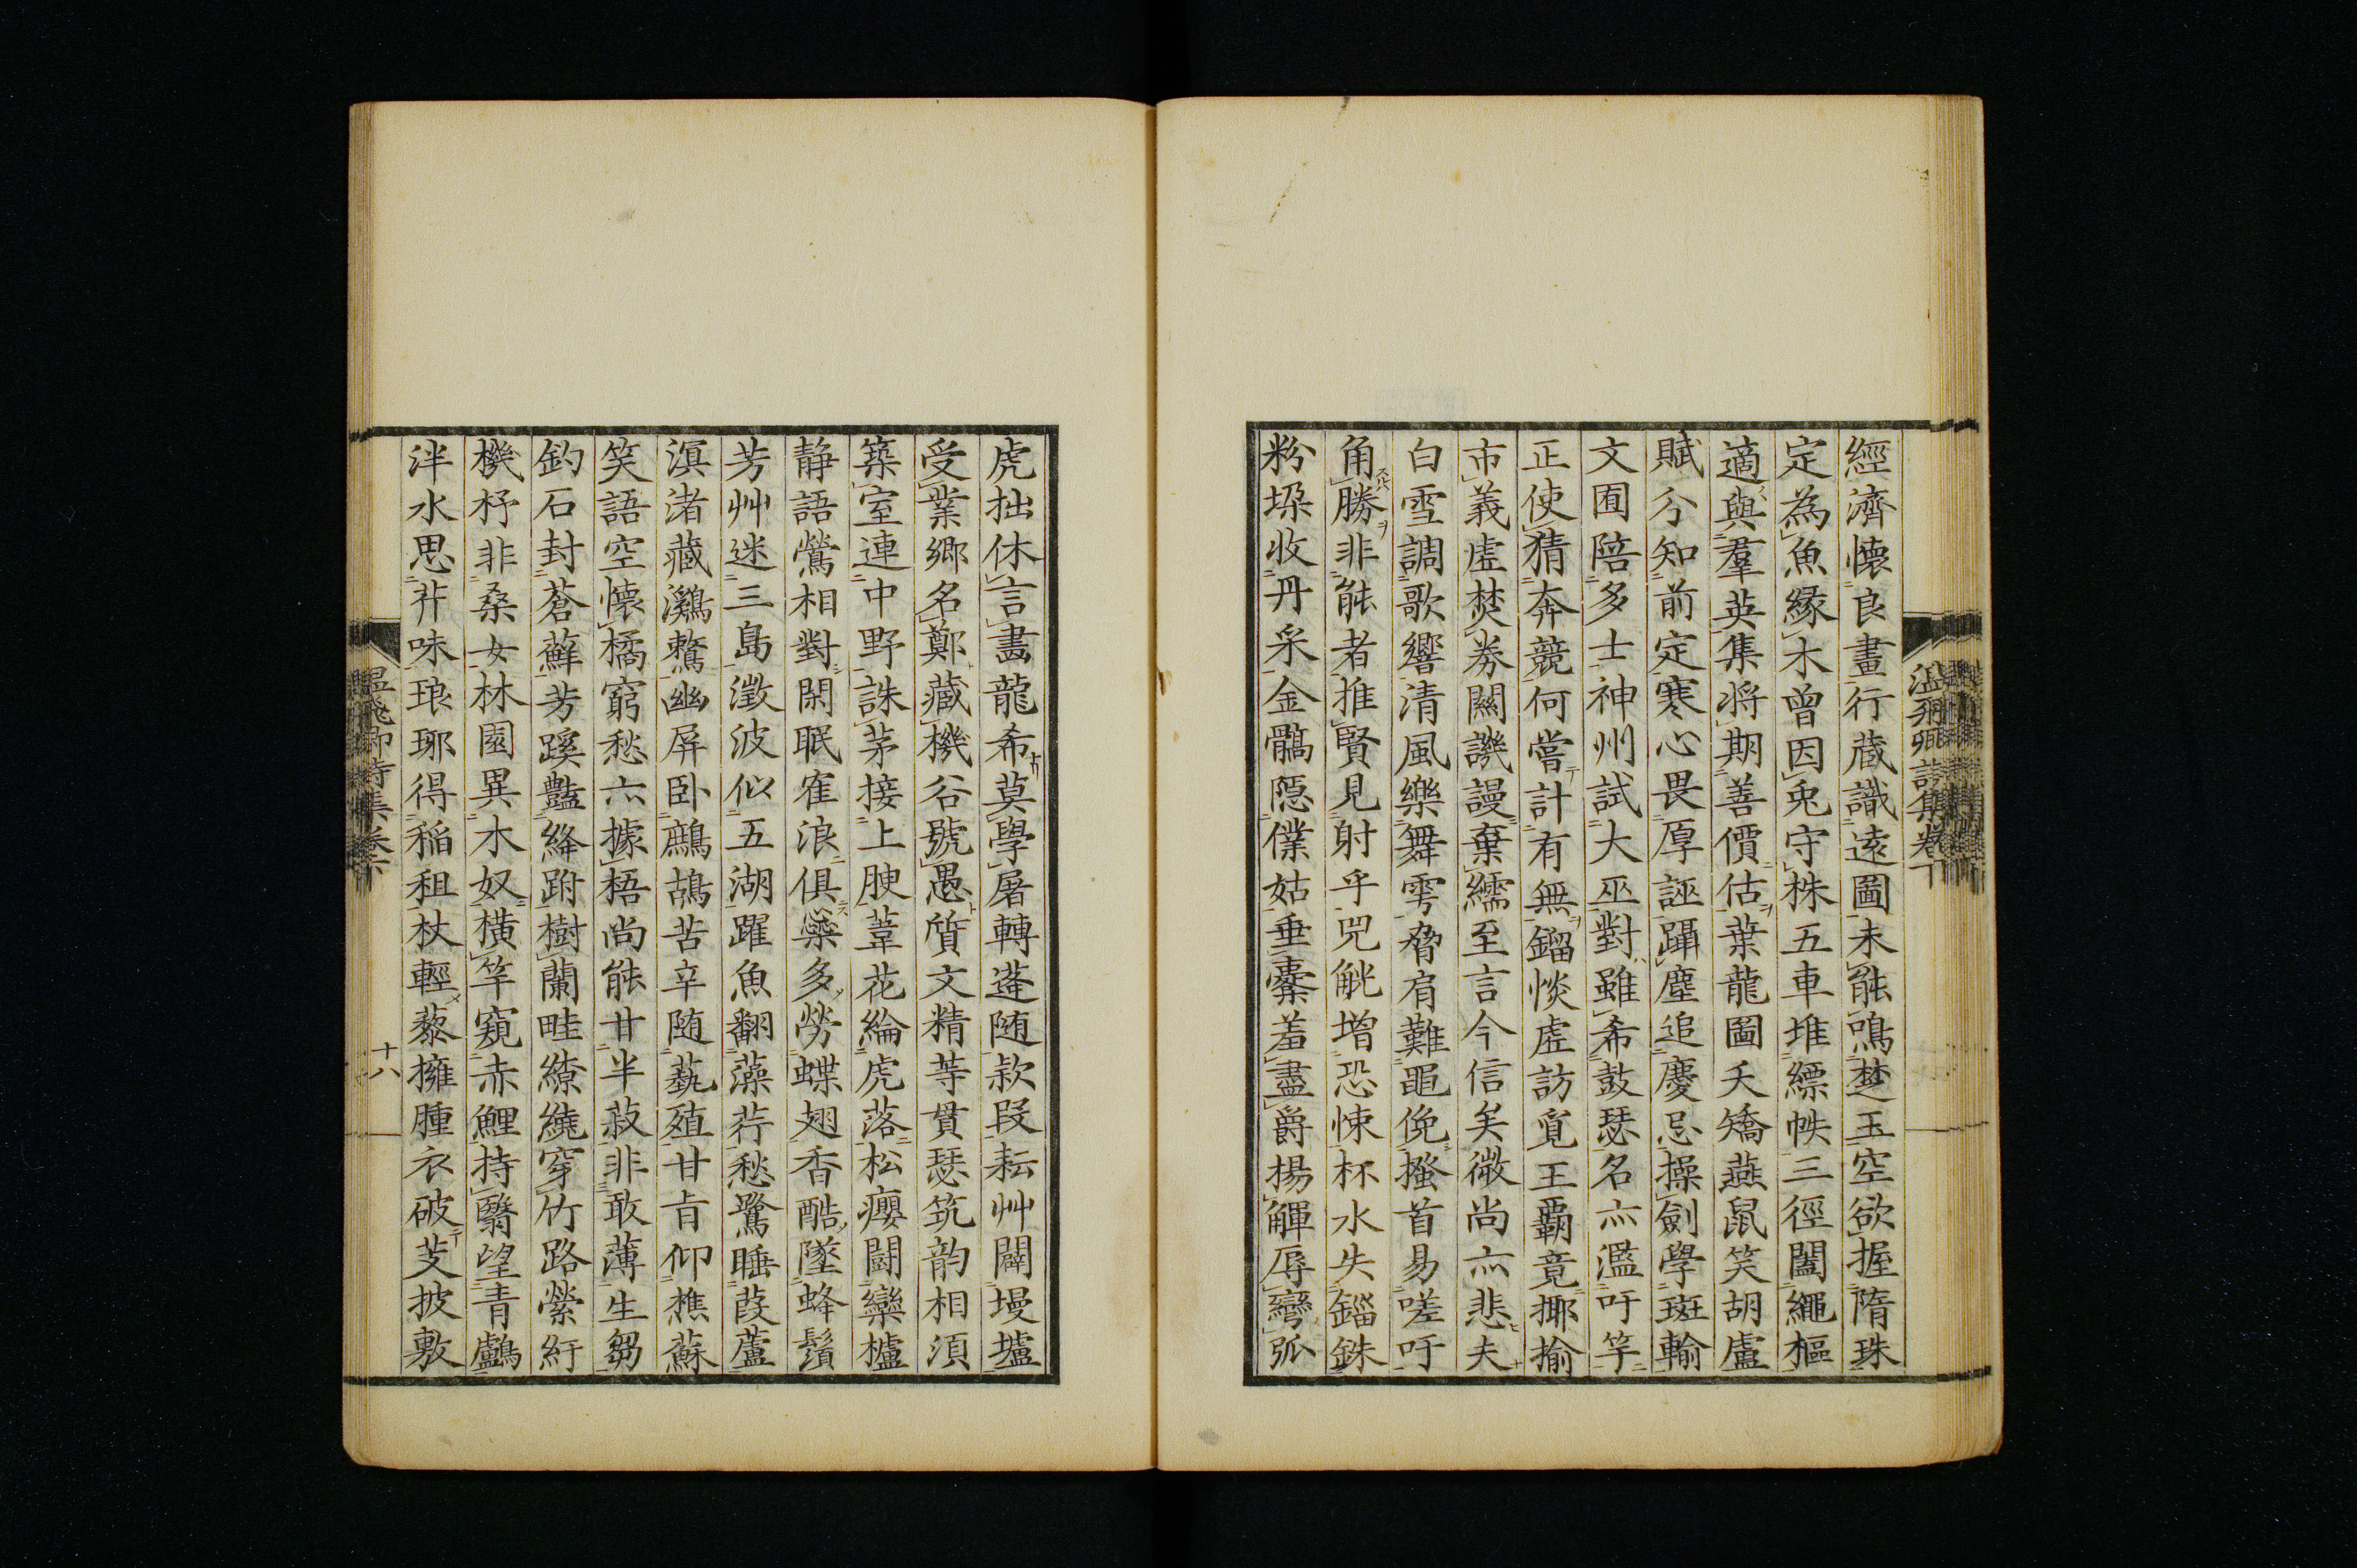 經濟懐良畫行蔵識遠圖未能鳴楚玉空欲握隋珠
定為魚緣木曽因兎守株五車堆縹帙三徑闔繩樞
適與羣英集将期善價估葉龍圖夭矯燕鼠笑胡盧
賦分知前定寒心畏厚誣躡塵追慶忌操劍學班輸
文囿陪多士神州試大巫對雖希鼓瑟名亦濫吁竽
正使猜奔競何嘗計有無鎦惔虚訪覓王覇竟揶揄
市義虚焚券關譏謾棄繻至言今信矣微尚亦悲夫
白雪調歌響清風樂舞雩脅肩難黽俛搔首易嗟吁
角勝非能者推賢見射乎兕觥増恐悚杯水失錙銖
粉垜收丹采金髇隠僕姑垂櫜羞盡爵揚觶辱彎弧
温飛卿詩集卷六
虎拙休言畫龍希莫學屠轉蓬随欵段耘艸闢墁壚
受業郷名鄭藏機谷號愚質文精等貫瑟筑韵相須
築室連中野誅茅接上腴葦花綸虎落松癭鬬欒櫨
静語鶯相對閑眠雀浪俱蘂多勞蝶翅香酷墜蜂鬚
芳艸迷三島澂波似五湖躍魚翻藻荇愁鷺睡葭蘆
溟渚藏鸂鶒幽屏卧鷓鴣苦辛随蓺殖甘旨仰樵蘇
笑語空懐橘窮愁亦據梧尚能甘半菽非敢薄生芻
釣石封蒼蘚芳蹊豔絳跗樹蘭畦繚繞穿竹路縈紆
機杼非桑女林園異木奴横竿窺赤鯉持翳望青鸕
泮水思芹味琅琊得稲租杖輕藜擁腫衣破芰披敷
温飛卿詩集卷六
十八